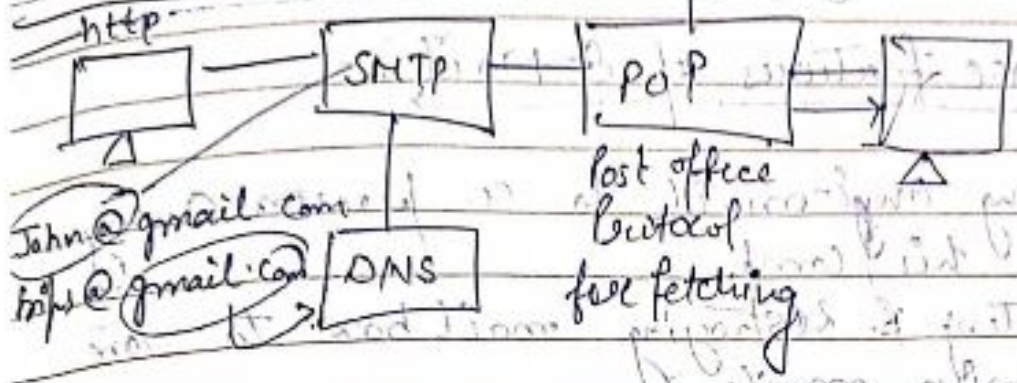 http
SMTP
POP
Post office
Protocol
for fetching
John@gmail.com
@gmail.com
DNS